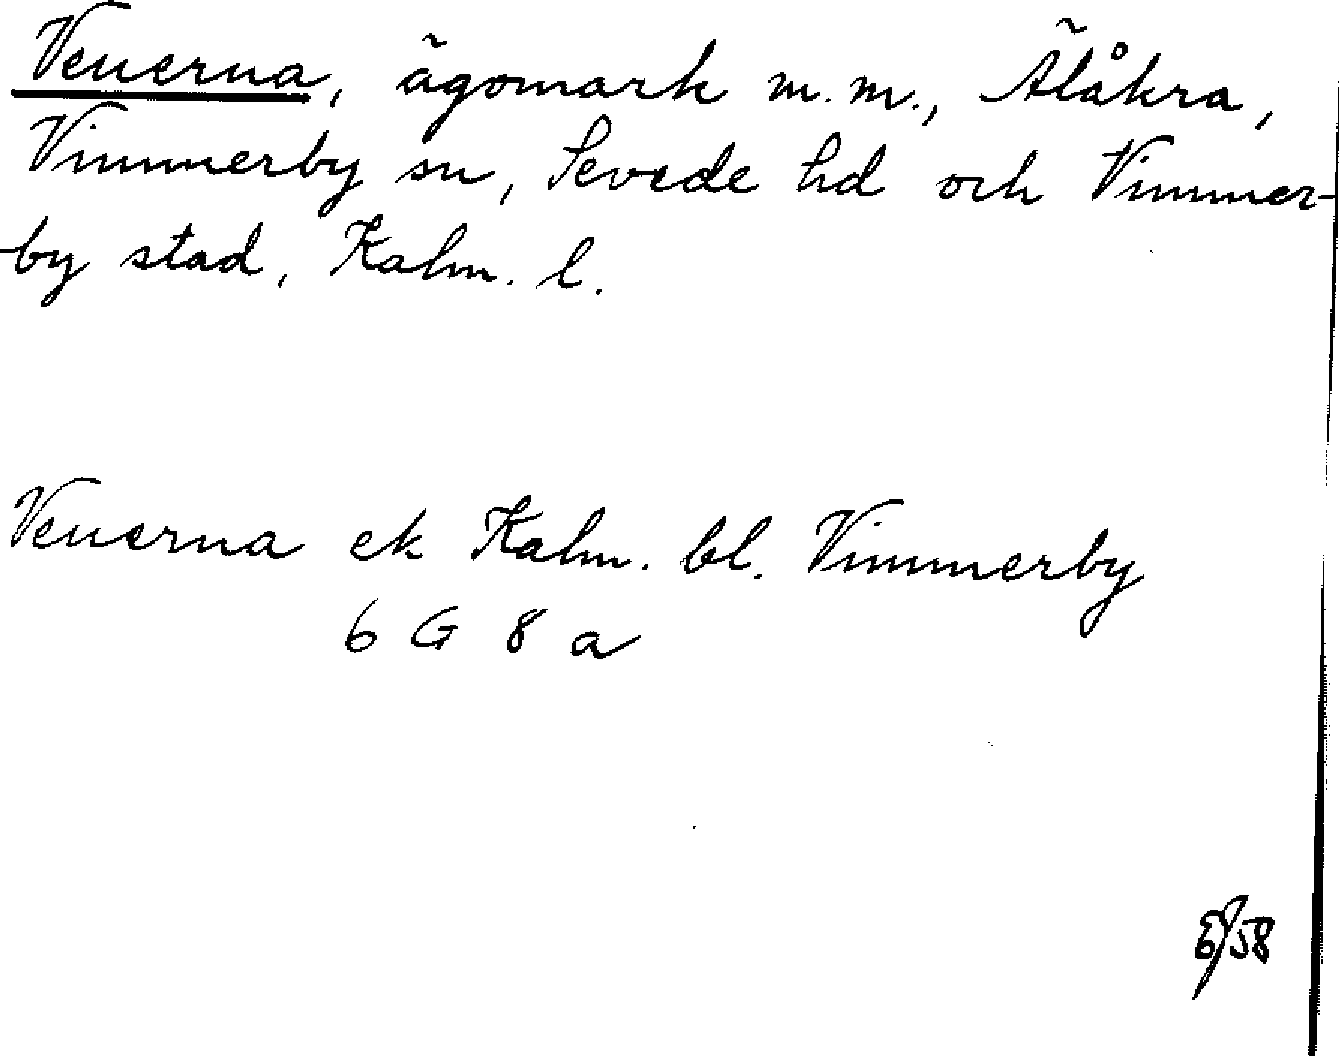 Venerna, ägomark m.m., Älåkra,
Vimmerby sn, Sevede hd och Vimmer-
-by stad, Kalm. l.
Venerna ek Kalm. bl. Vimmerby
6 G 8 a